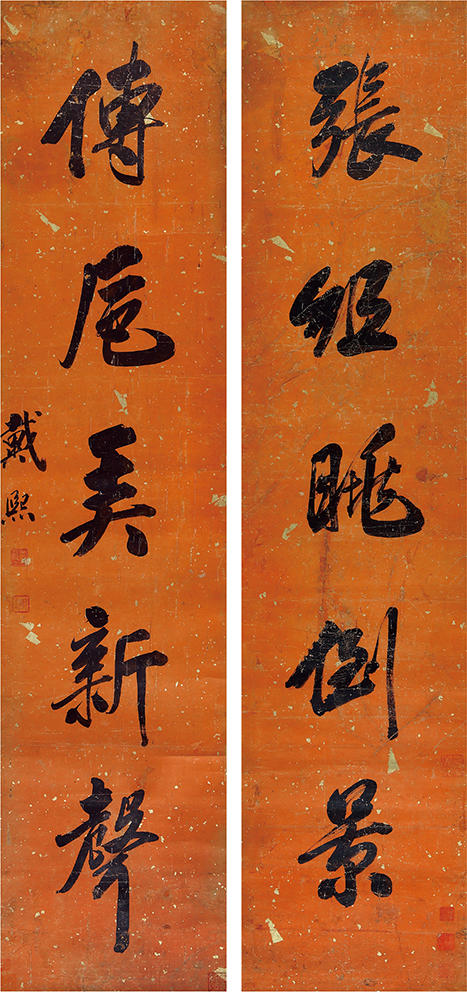 張組眺倒景
傳巵美新聲
戴熙